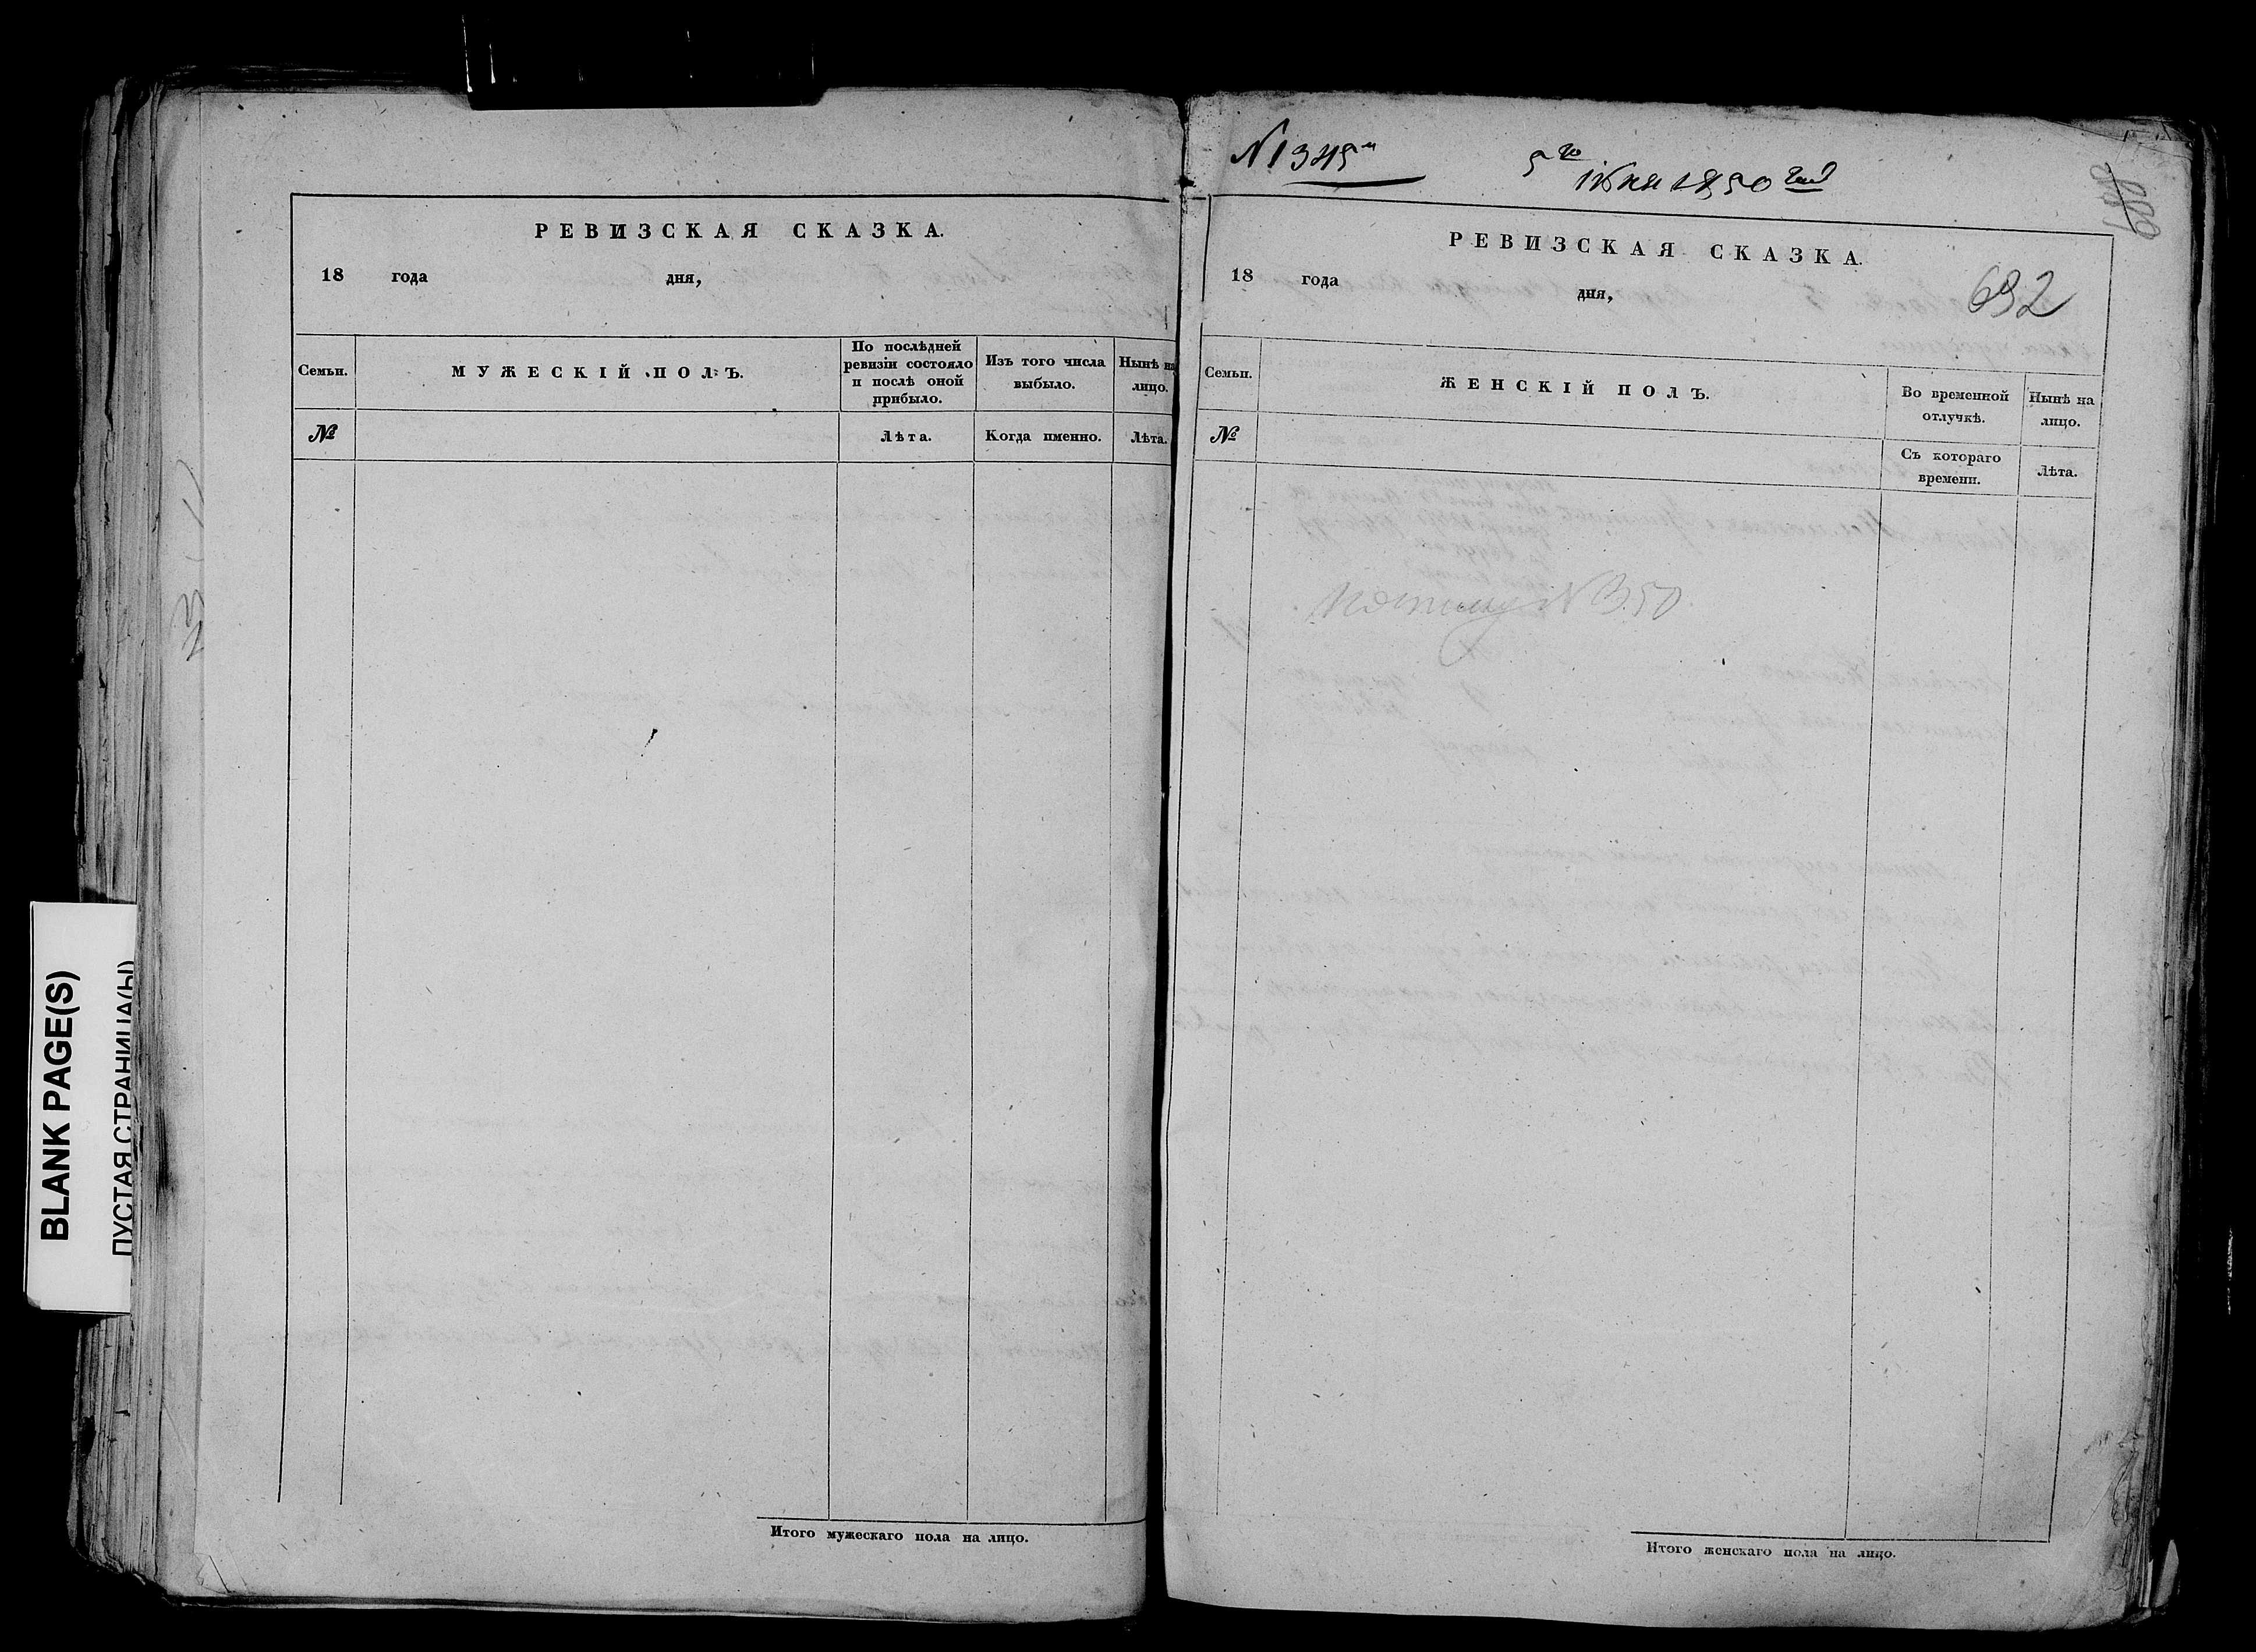 BLANK PAGE(S)
ПУСТАЯ СТРАНИЦА(Ы)
РЕВИЗСКАЯ СКАЗКА.
18 года дня,
Семьи.
МУЖЕСКІЙ ПОЛЪ.
По послѣдней
ревизіи состояло
и послѣ оной
прибыло.
Изъ того числа
выбыло.
Нынѣ на
лицо.
№
Лѣта.
Когда именно.
Лѣта.
Итого мужескаго пола на лицо.
N 1345
5го
Іюня 1850 года
РЕВИЗСКАЯ СКАЗКА.
18 года дня,
692
Семьи.
ЖЕНСКІЙ ПОЛЪ.
Во временной
отлучкѣ.
Нынѣ на
лицо.
№
Съ котораго
времени.
Лѣта.
N 350
Итого женскаго пола на лицо.